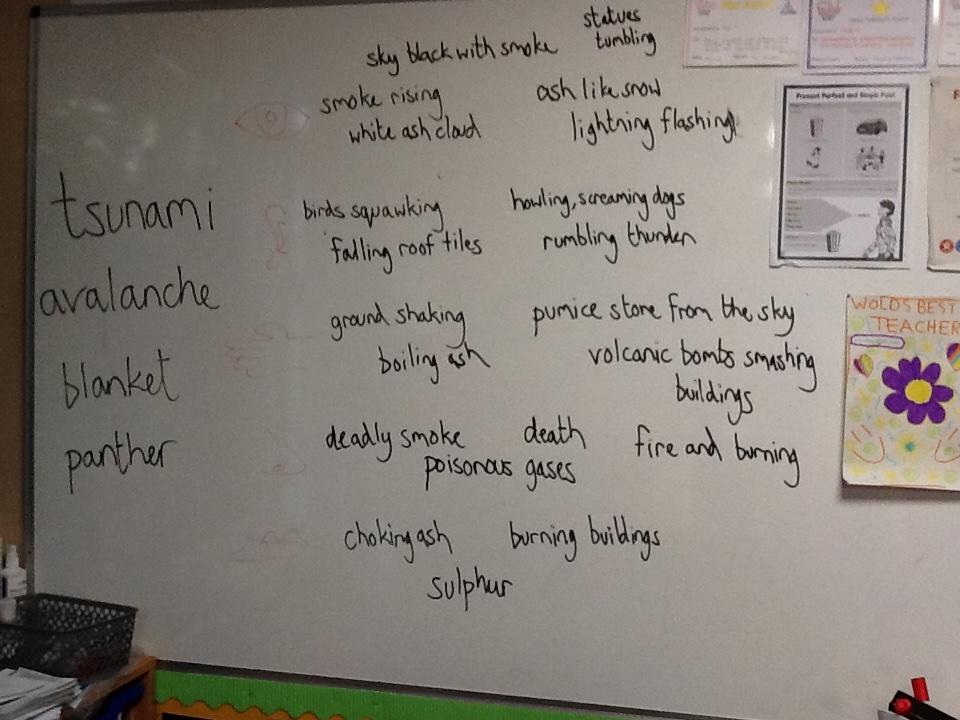 statues
tumbling
sky black with smoke
smoke rising
ash like snow
white ash cloud
lightning flashing
tsunami
birds squawking
howling, screaming dogs
falling roof tiles
rumbling thunder
avalanche
ground shaking
pumice stone from the sky
boiling ash
volcanic bombs smashing
buildings
blanket
panther
deadly smoke
death
fire and burning
poisonous gases
choking ash
burning buildings
sulphur
Present Perfect and Simple Past
WOLDS BEST
TEACHER